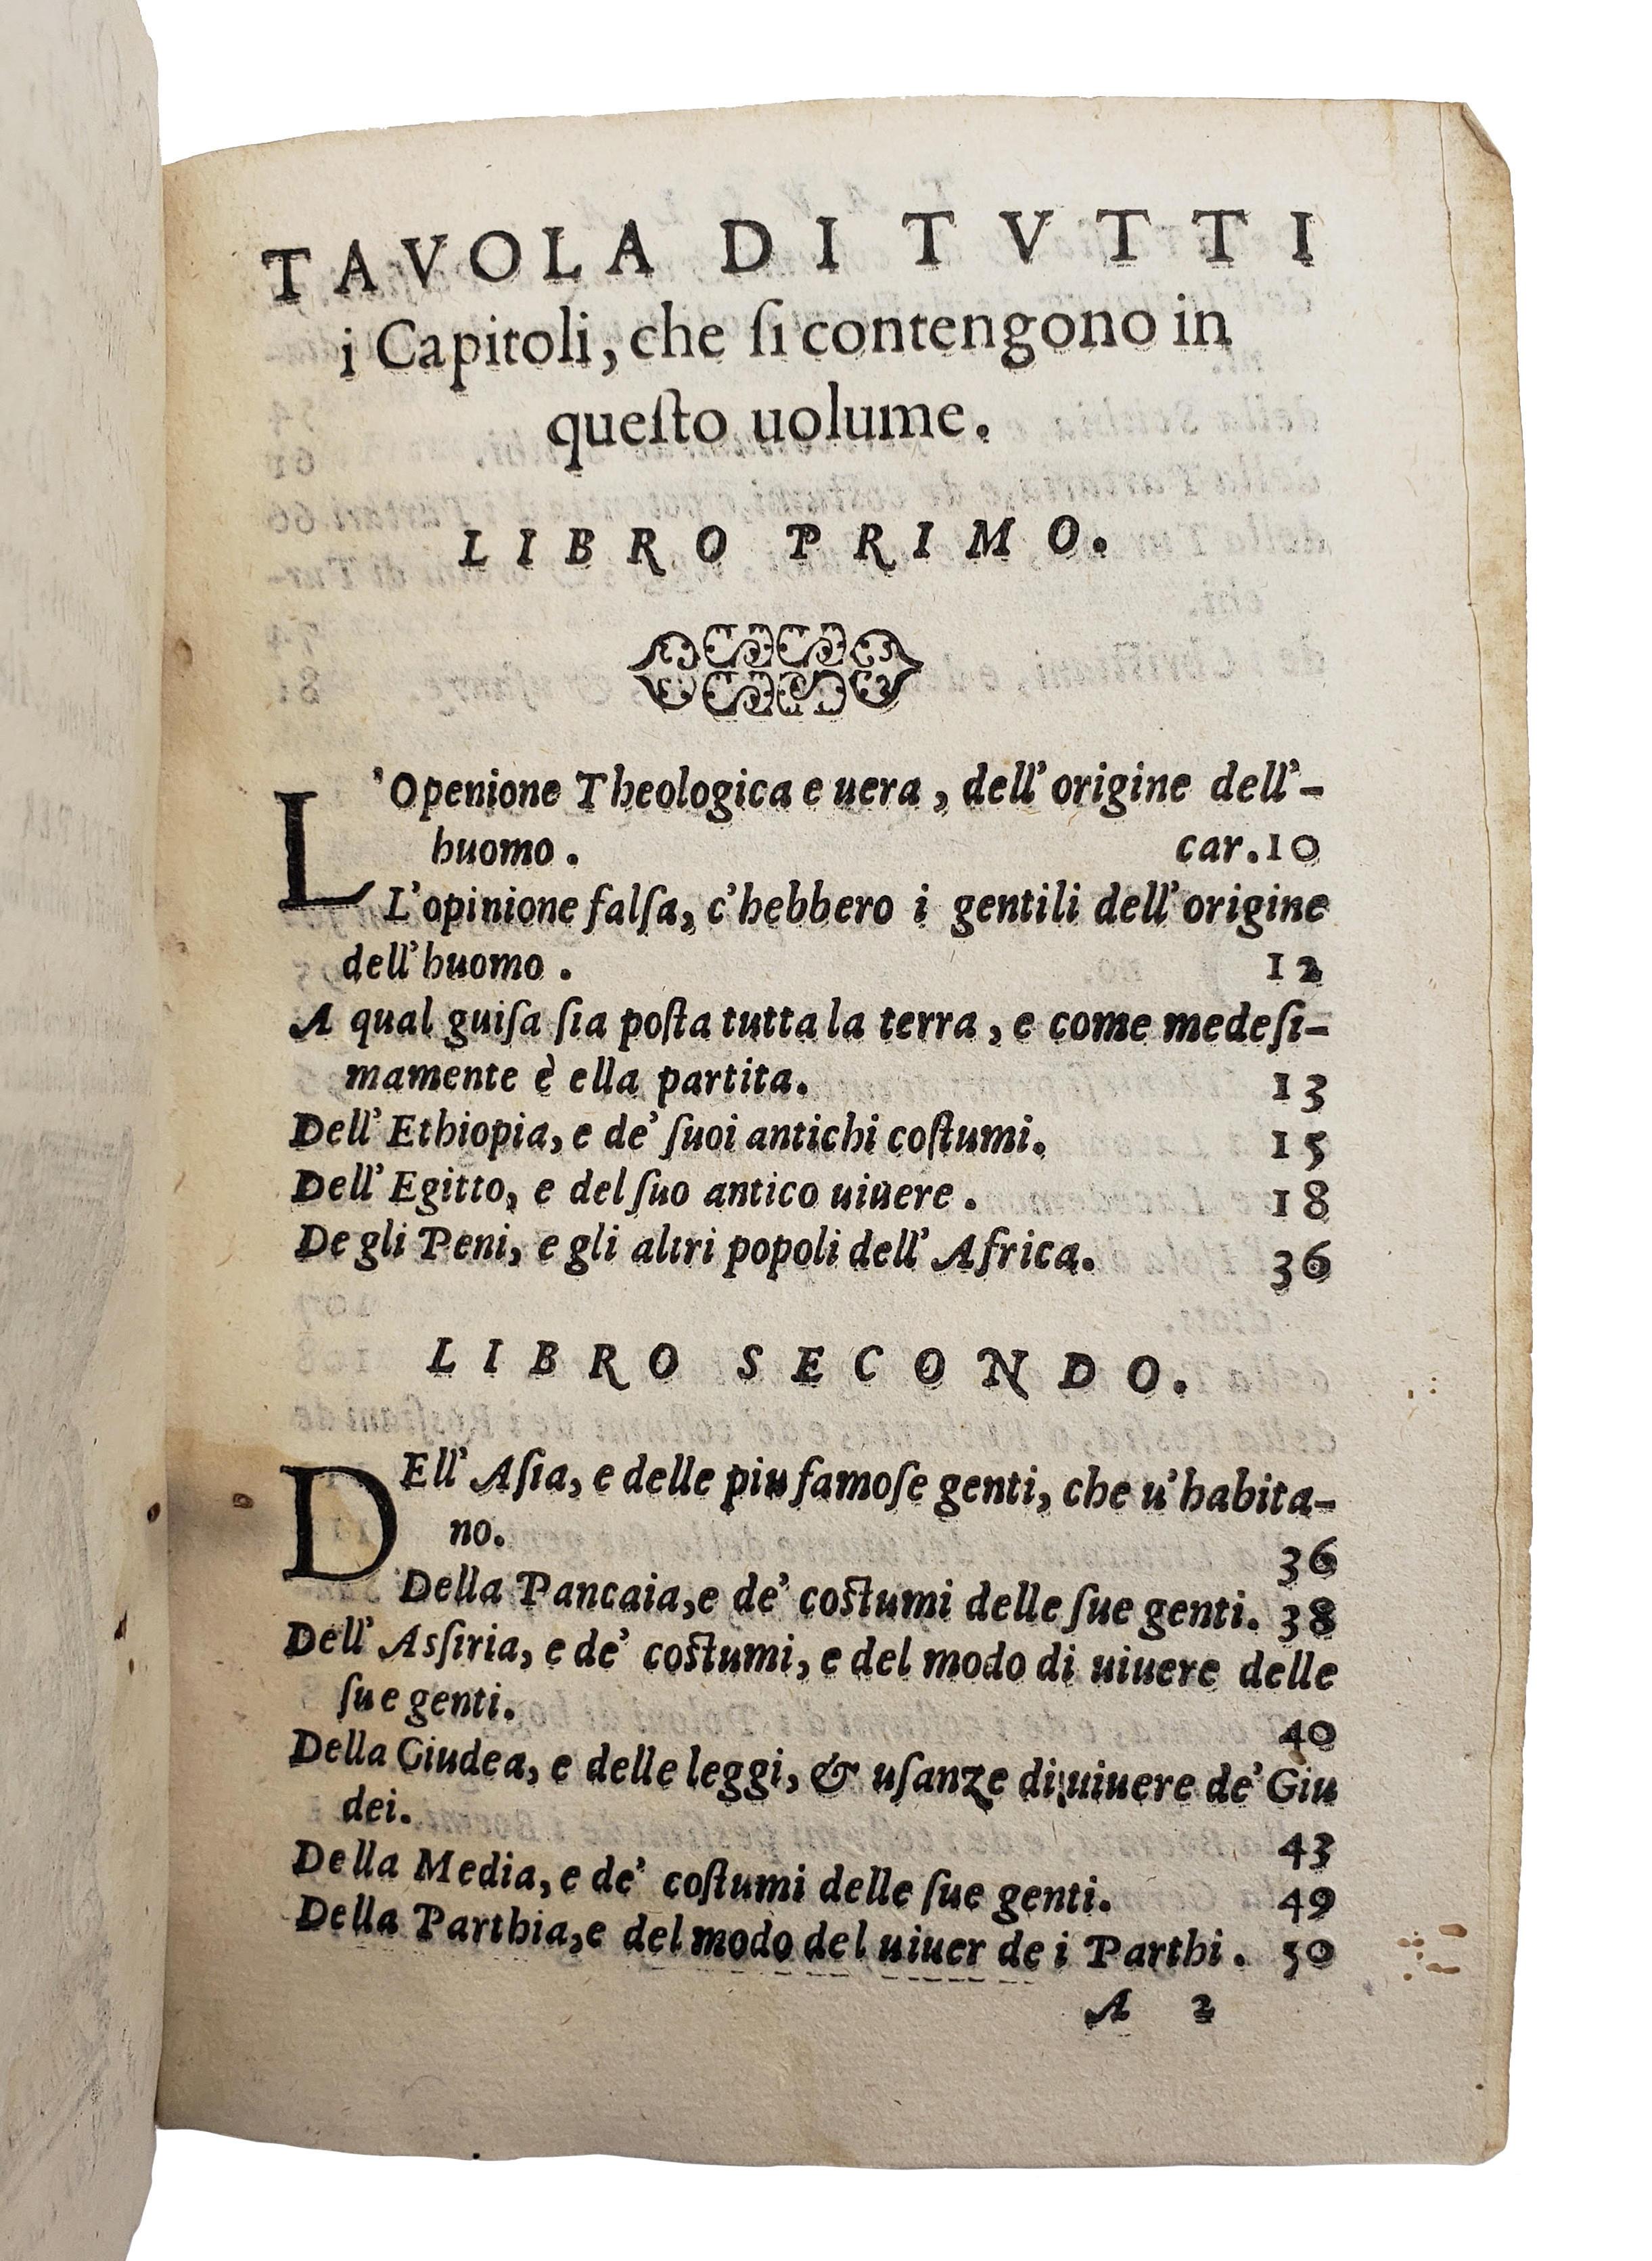 TAVOLA DI TVTTI
i Capitoli, che ſi contengono in
queſto uolume.
LIBRO PRIMO.
L'Openione Theologica e uera, dell'origine dell'-
huomo. car. 10
L'opinione falſa, c'hebbero i gentili dell'origine
dell'huomo. 12
A qual guiſa ſia poſta tutta la terra, e come medeſi-
mamente è ella partita. 13
Dell'Ethiopia, e de' ſuoi antichi coſtumi. 15
Dell'Egitto, e del ſuo antico uiuere. 18
De gli Peni, e gli altri popoli dell'Africa. 36
LIBRO SECONDO.
DEll'Aſia, e delle piu famoſe genti, che u'habita-
no. 36
Della Pancaia, e de' coſtumi delle ſue genti. 38
Dell'Asſiria, e de' coſtumi, e del modo di uiuere delle
ſue genti. 40
Della Giudea, e delle leggi, & uſanze di uiuere de' Giu
dei. 43
Della Media, e de' coſtumi delle ſue genti. 49
Della Parthia, e del modo del uiuer de i Parthi. 50
A 2